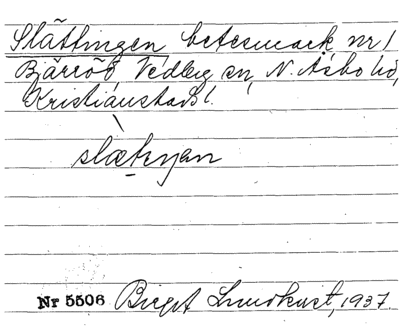 Slättingen, betesmark nr 1
Bjärröd, Vedby sn, N. Åsbo hd,
Kristianstads l.
slæteŋan
Nr 5506 Birgit Lundkvist, 1937.